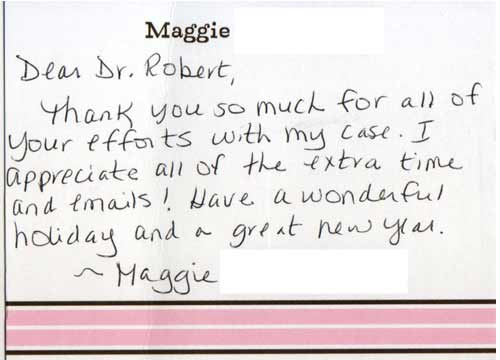 Maggie
Dear Dr. Robert,
Thank you so much for all of
your efforts with my case. I
appreciate all of the extra time
and emails! Have a wonderful
holiday and a great new year.
~ Maggie